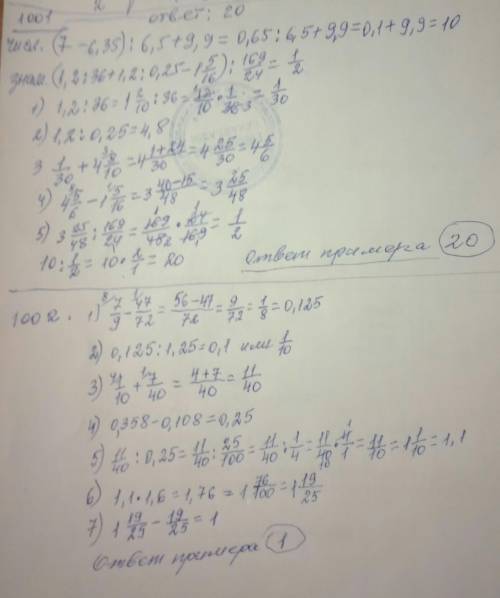 1001 ответ: 20
числ. (7 - 6,35) : 6,5 + 9,9 = 0,65 : 6,5 + 9,9 = 0,1 + 9,9 = 10
знам. (1,2 : 36 + 1,2 : 0,25 - 1 5/16) : 169/24 = 1/2
1) 1,2 : 36 = 1 2/10 : 36 = 12/10 · 1/36 = 1/30
2) 1,2 : 0,25 = 4,8
3 1/30 + 4 8/10 = 4 1+24/30 = 4 25/30 = 4 5/6
4) 4 5/6 - 1 5/16 = 3 40-15/48 = 3 25/48
5) 3 25/48 : 169/24 = 169/48 · 24/169 = 1/2
10 : 1/2 = 10 · 2/1 = 20
Ответ примера 20
1002. 1) 7/9 - 47/72 = 56-47/72 = 9/72 = 1/8 = 0,125
2) 0,125 : 1,25 = 0,1 или 1/10
3) 1/10 + 7/40 = 4+7/40 = 11/40
4) 0,358 - 0,108 = 0,25
5) 11/40 : 0,25 = 11/40 : 25/100 = 11/40 : 1/4 = 11/40 · 4/1 = 11/10 = 1 1/10 = 1,1
6) 1,1 · 1,6 = 1,76 = 1 76/100 = 1 19/25
7) 1 19/25 - 19/25 = 1
Ответ примера 1